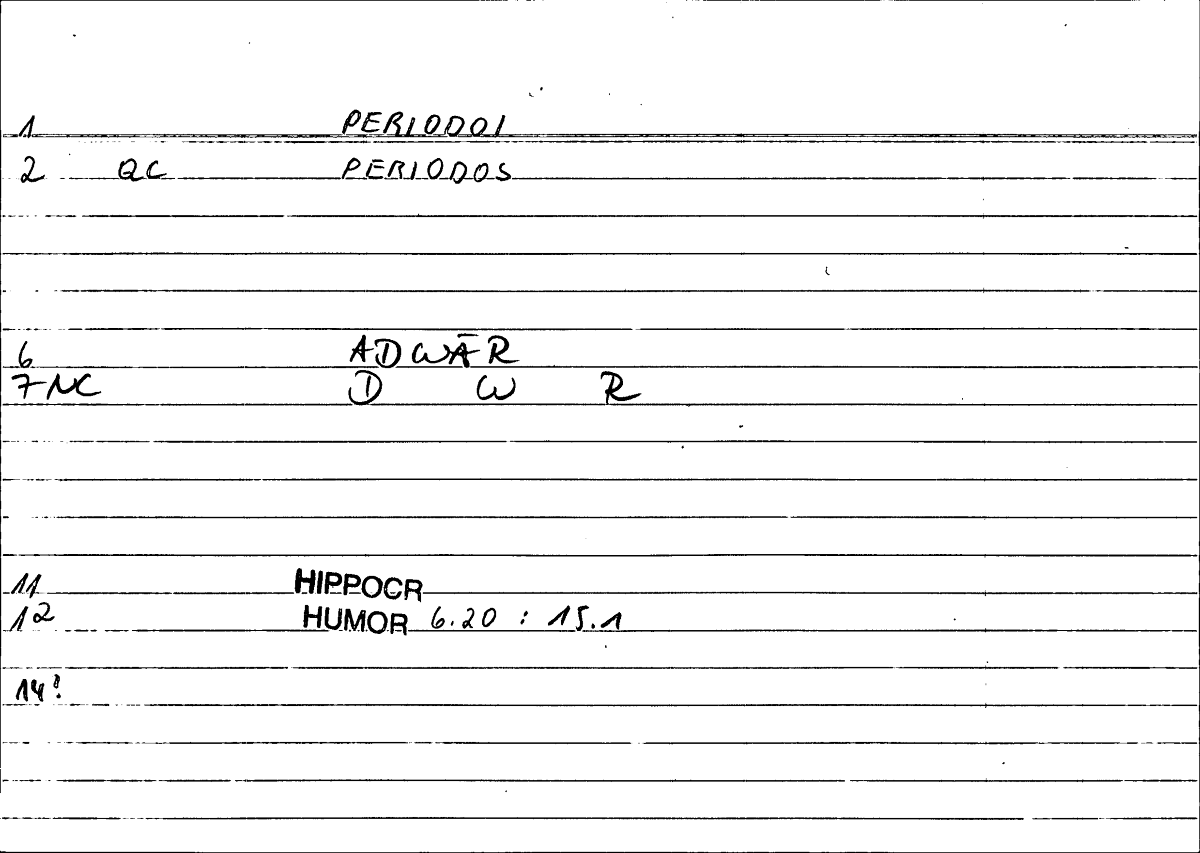 1 PERIODOI
2 QC PERIODOS
6 ADWĀR
7 NC D W R
11 HIPPOCR
12 HUMOR 6.20 : 15.1
14!